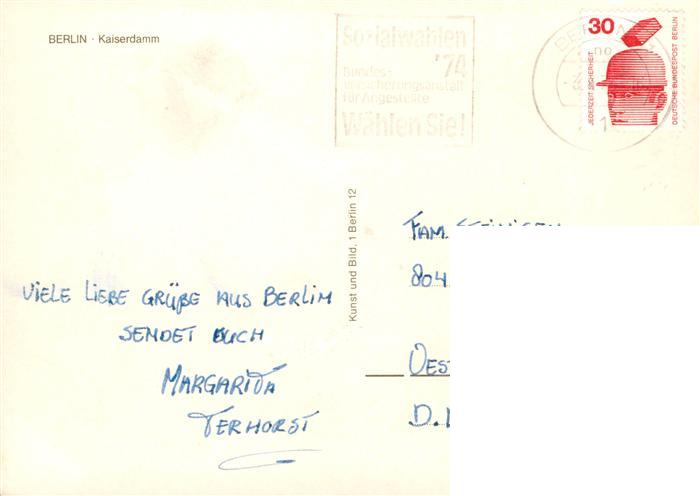 BERLIN · Kaiserdamm
Sozialwahlen
'74
Bundes-
versicherungsanstalt
für Angestellte
Wählen Sie!
30
JEDERZEIT SICHERHEIT
DEUTSCHE BUNDESPOST BERLIN
Kunst und Bild, 1 Berlin 12
FAM.
804
OEST
D.
VIELE LIEBE GRÜßE AUS BERLIN
SENDET EUCH
MARGARITA
TERHORST